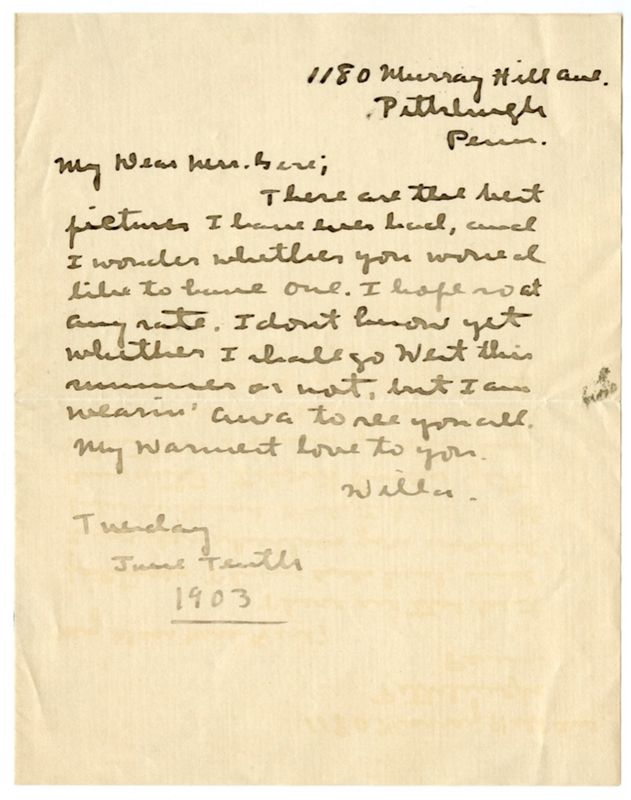 1180 Murray Hill Ave.
Pittsburgh
Penn.
My Dear Mrs. Gere;
These are the best
pictures I have ever had, and
I wonder whether you would
like to have one. I hope so at
any rate. I don't know yet
whether I shall go West this
summer or not, but I am
wearin' awa to see you all.
My warmest love to you.
Willa.
Tuesday
June Tenth
1903